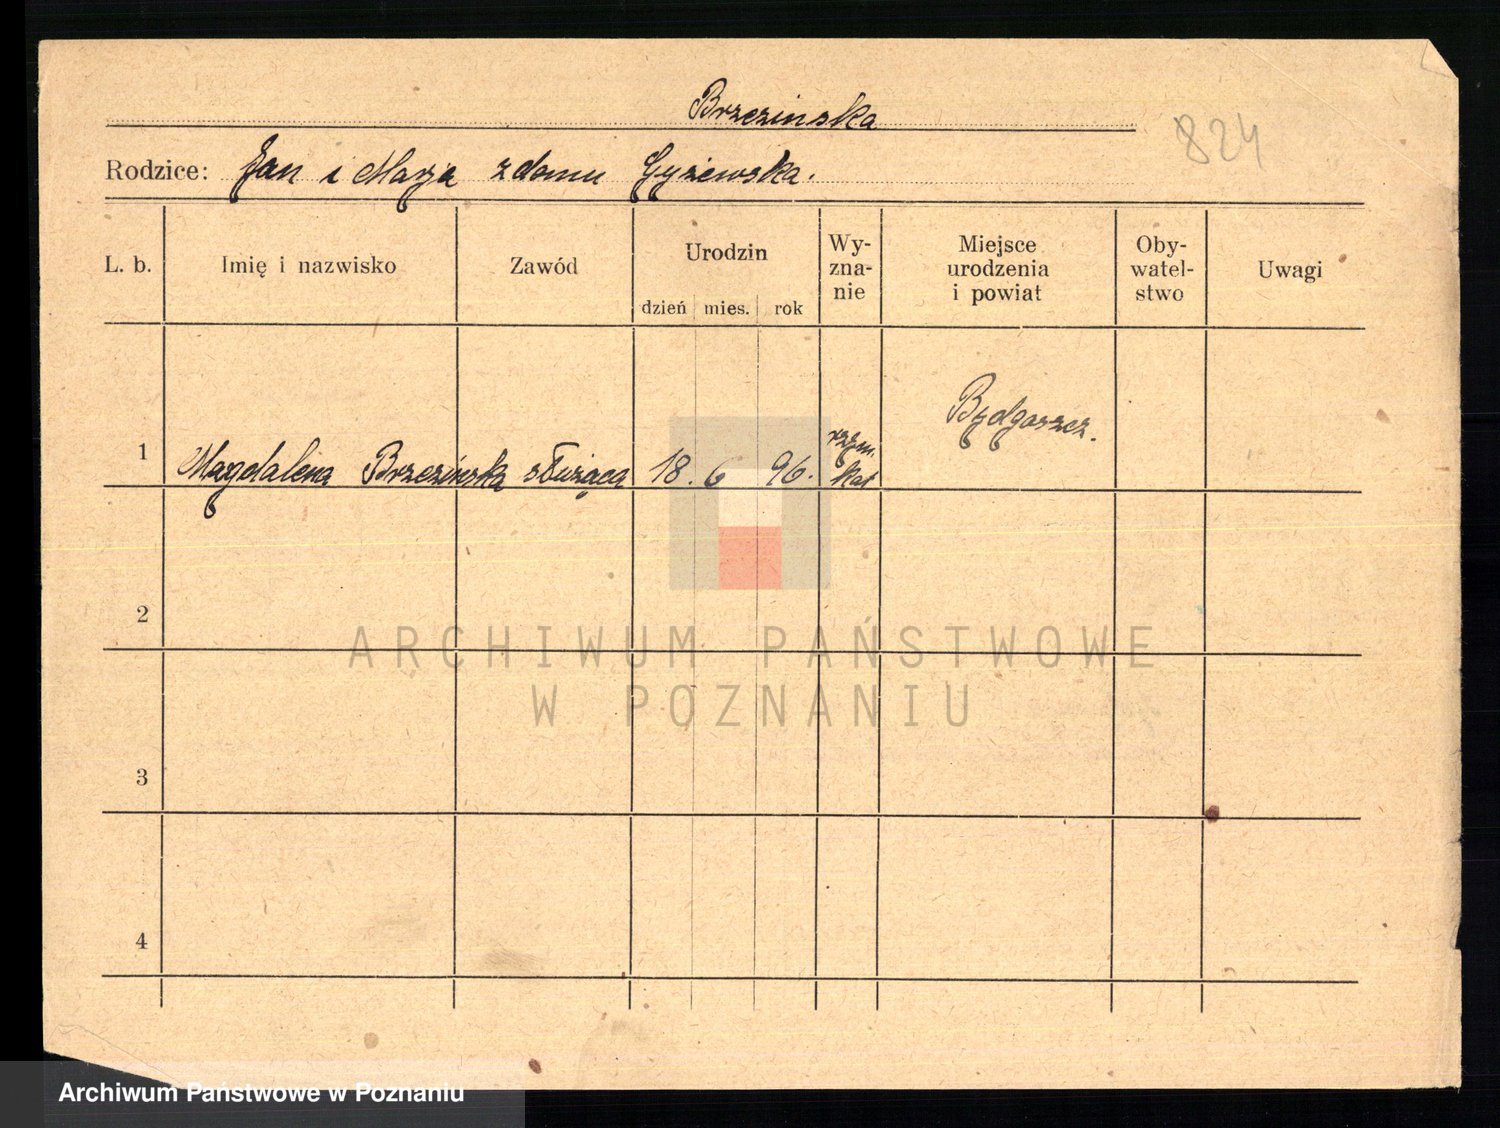 Brzezinska
824
Rodzice: Jan i Marja z domu Gyżewska.
L. b. Imię i nazwisko Zawód Urodzin dzień mies. rok Wy-zna-nie Miejsce urodzenia i powiat Oby-watel-stwo Uwagi
1 Magdalena Brzezińska służąca 18. 6 96. rzym. kat Bydgoszcz.
2
ARCHIWUM PAŃSTWOWE
W POZNANIU
3
4
Archiwum Państwowe w Poznaniu